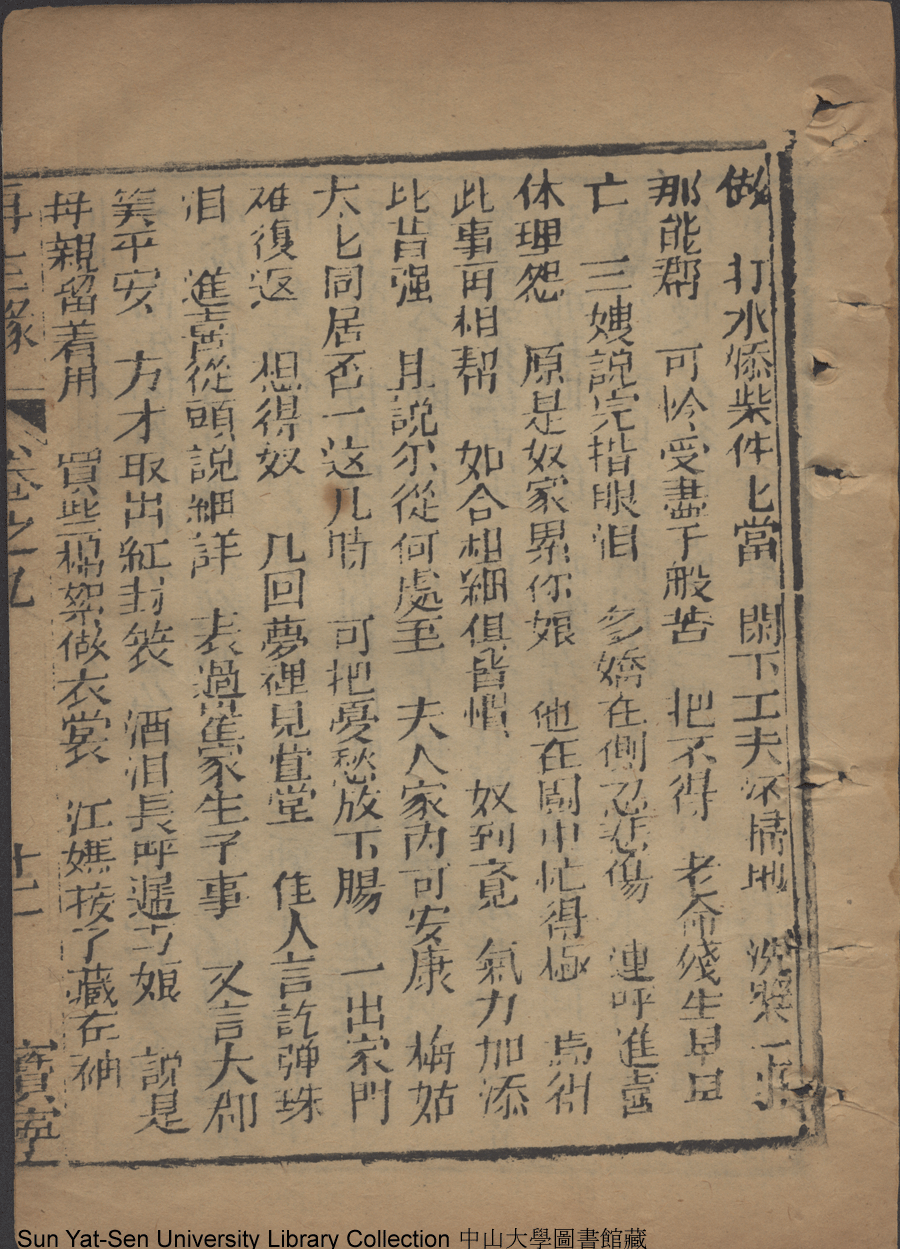 做　打水添柴件匕當　閑下工夫還掃地　洗漿一
那能郡　可怜受盡千般苦　把不得　老命殘生早日
亡　三嫂說完揩眼泪　多嬌在側忍悲傷　連呼進喜
休理怨　原是奴家累你娘　他在閣中忙得極　為何
此事再相帮　如合相細俱皆慣　奴到竟　氣力加添
比昔强　且說尔從何處至　夫人家內可安康　梅姑
太匕同居否　这几時　可把憂愁放下腸　一出家門
难復返　想得奴　几回夢裡見萱堂　佳人言訖弹珠
泪　進喜從頭說細詳　表過崔家生子事　又言大郡
算平安　方才取出紅封袋　洒泪長呼遞与娘　說是
母親留着用　買些棉絮做衣裳　江媽接了藏在袖
再生緣　卷之九　十二　寶寧
Sun Yat-Sen University Library Collection 中山大學圖書館藏